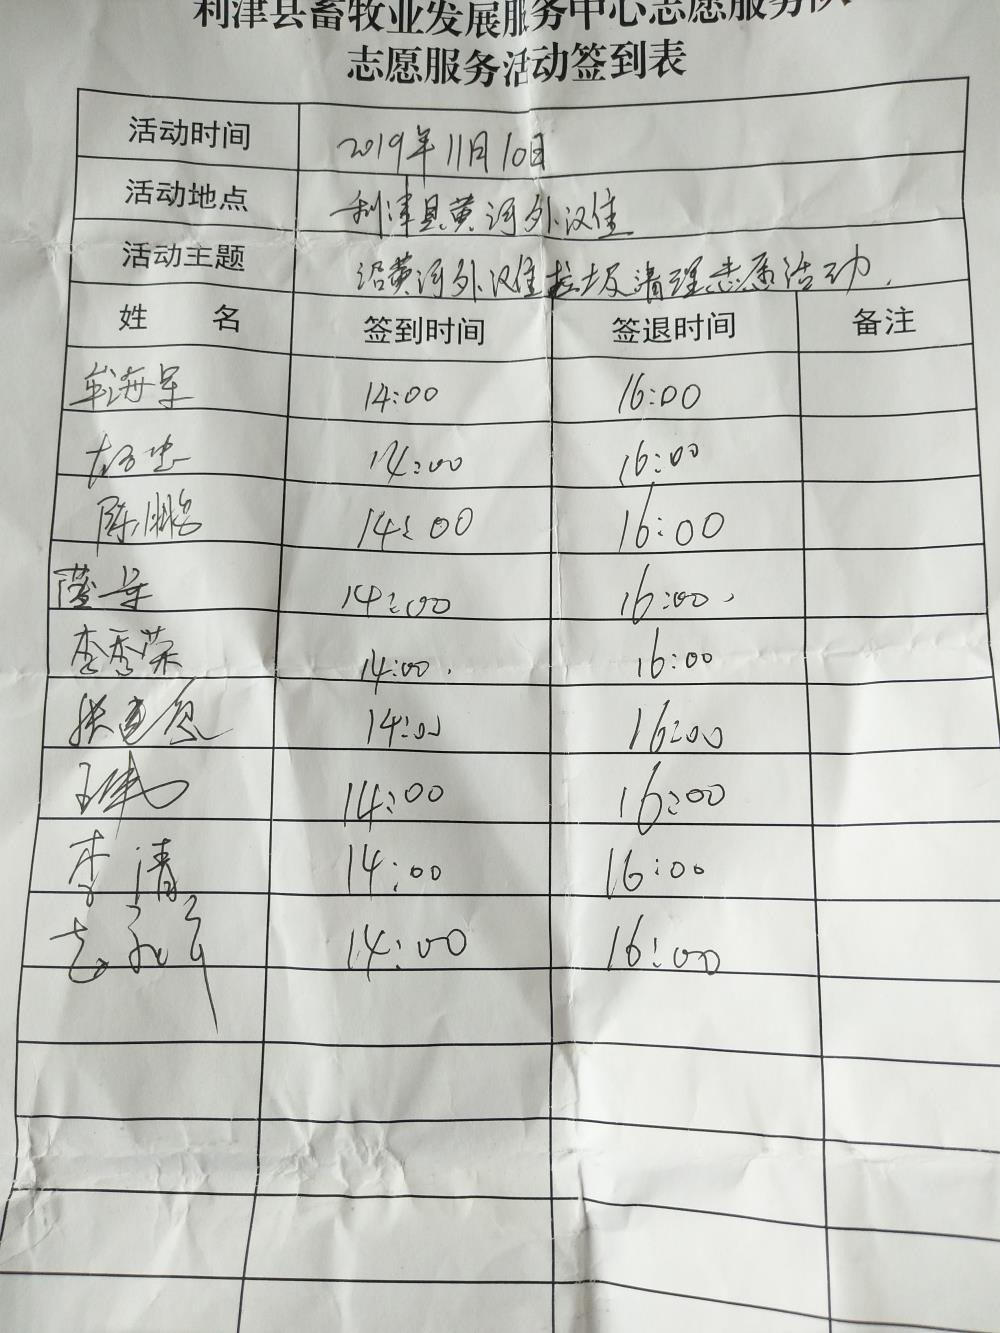 利津县畜牧业发展服务中心志愿服务队
志愿服务活动签到表
活动时间 2019年11月10日
活动地点 利津县黄河外汉住
活动主题 沿黄河外汉住垃圾清理志愿活动.
姓 名 签到时间 签退时间 备注
牟海军 14:00 16:00
14:00 16:00
陈鹏 14:00 16:00
14:00 16:00
李秀荣 14:00 16:00
张建 14:00 16:00
王 14:00 16:00
李清 14:00 16:00
14:00 16:00